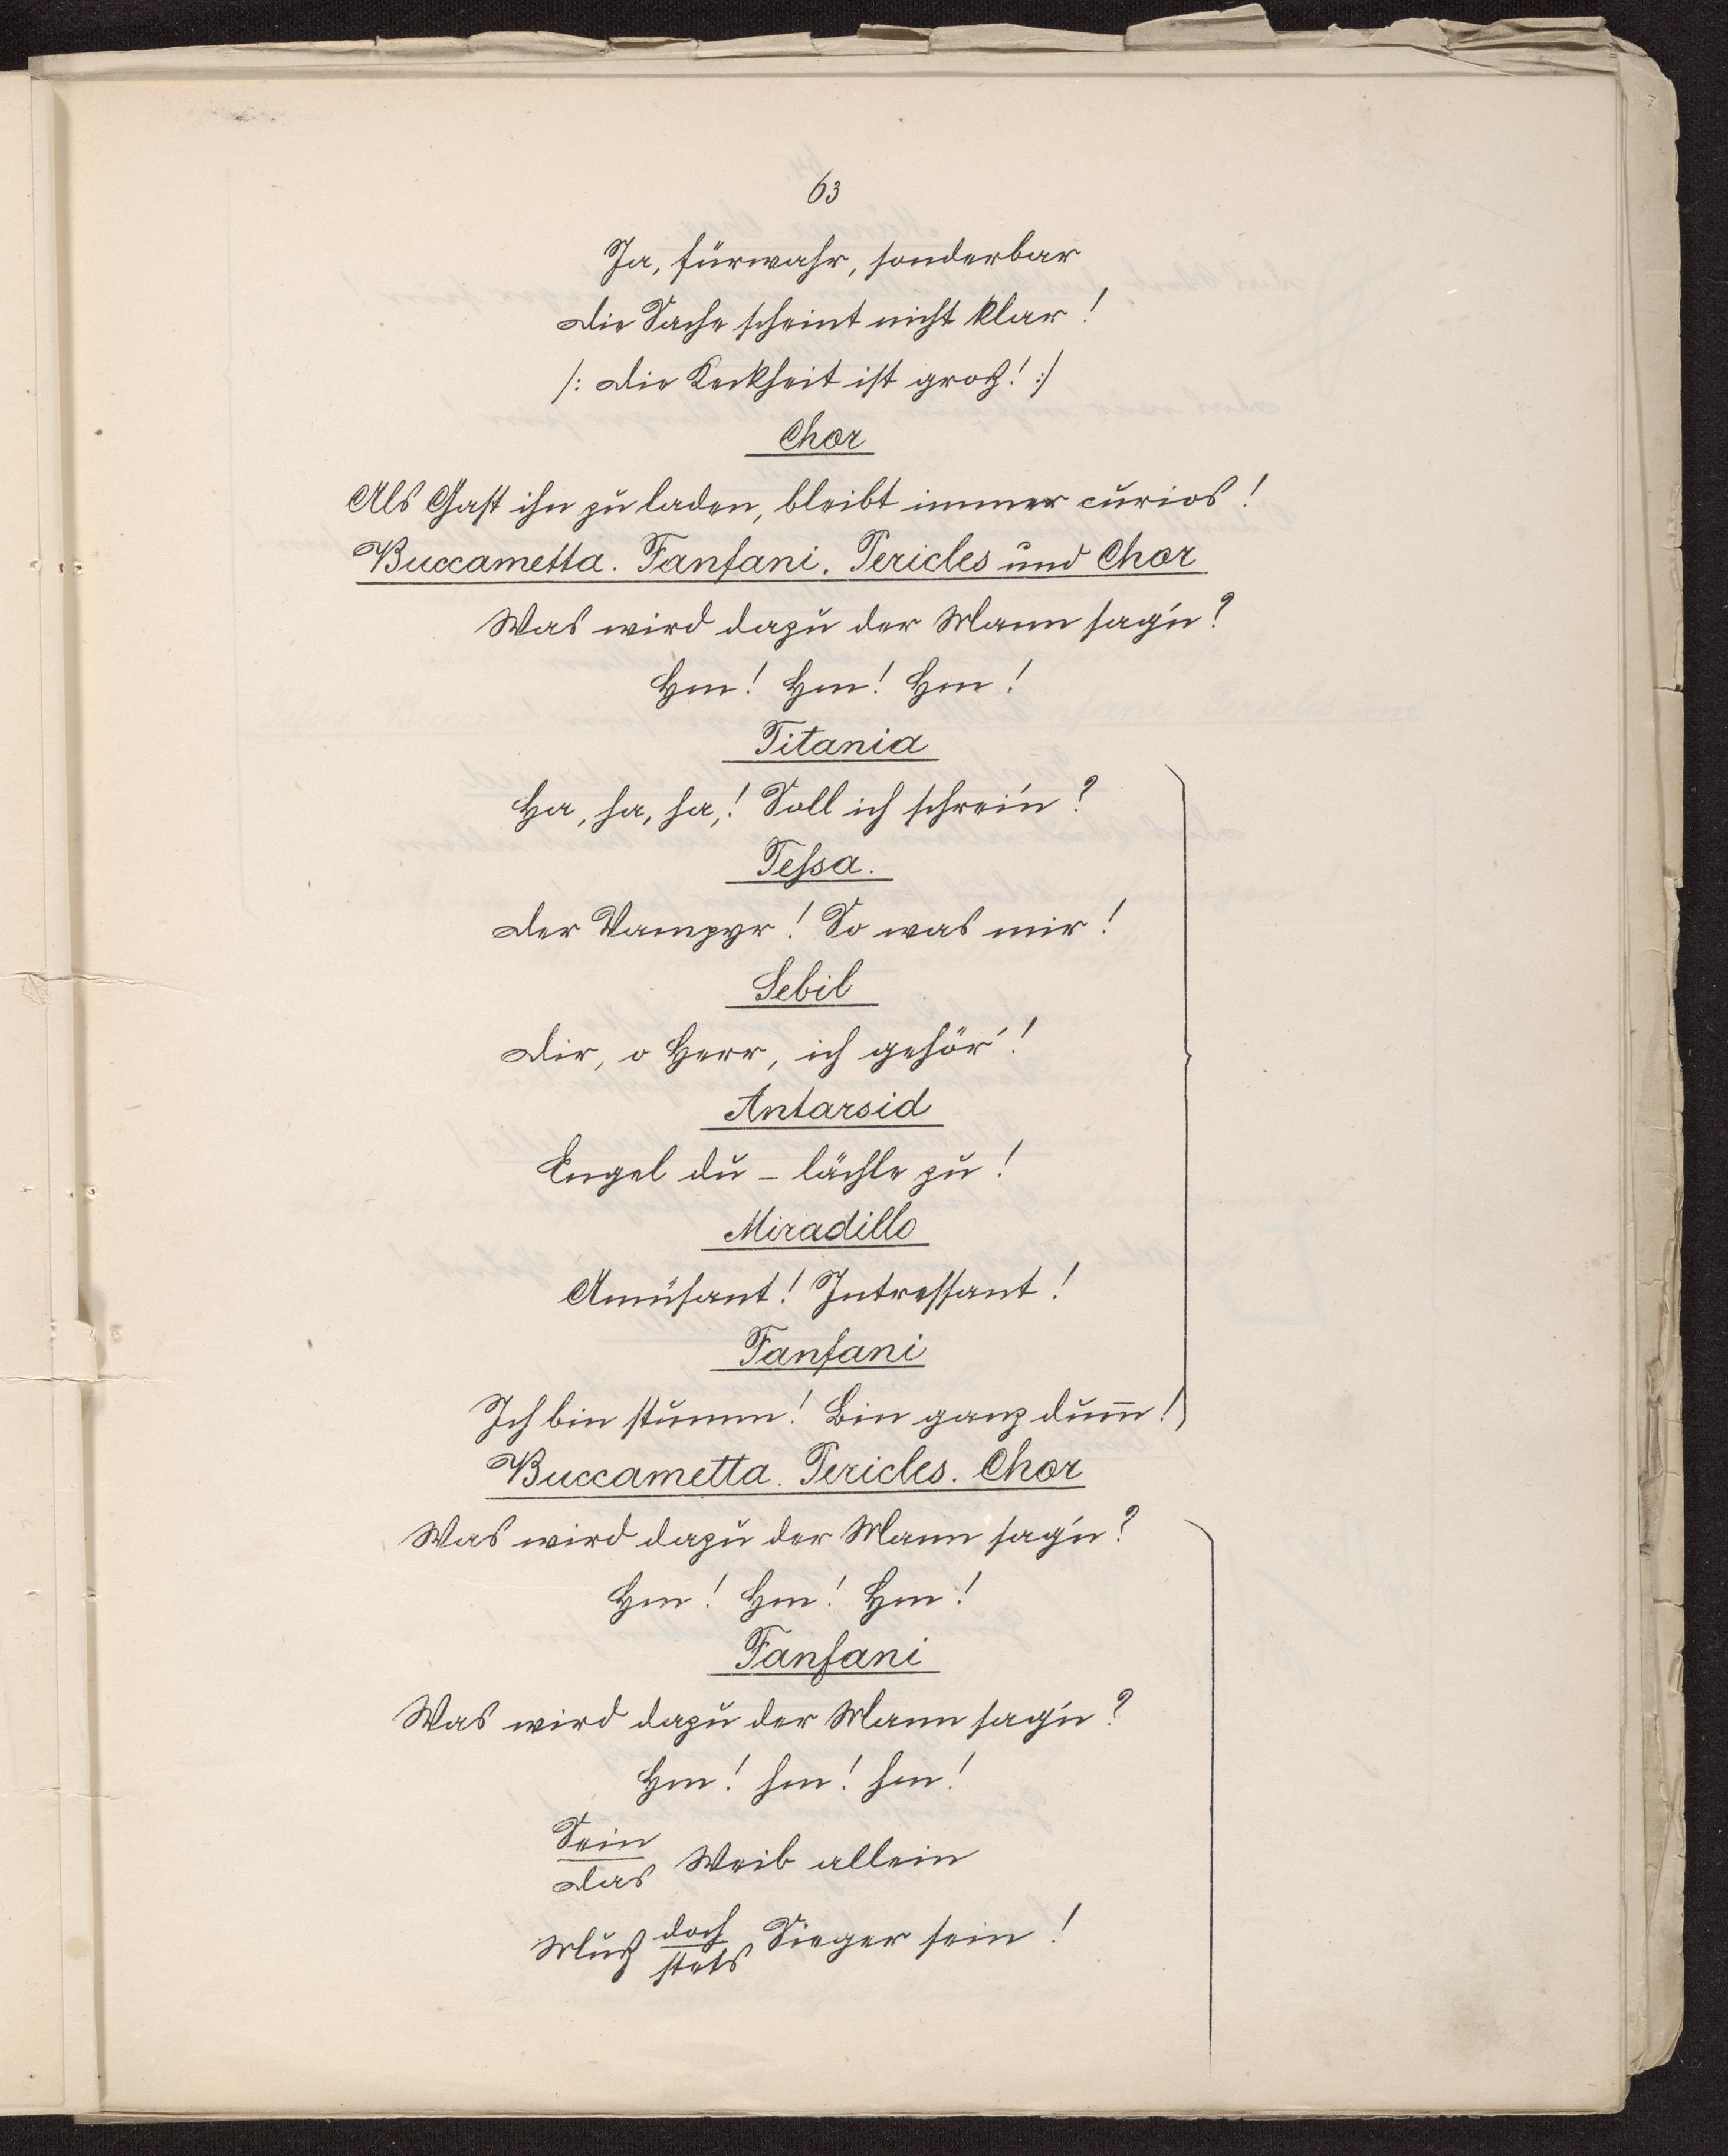 63
Ja, fürwahr, sonderbar
Die Sache scheint nicht klar!
/: Die Keckheit ist groß! :/
Chor
Als Gast ihn zu laden, bleibt immer curios!
Buccametta. Fanfani. Pericles und Chor
Was wird dazu der Mann sag'n?
Hm! Hm! Hm!
Titania
Ha, ha, ha,! Soll ich schrei'n?
Tessa.
Der Vampyr! So was mir!
Sebil
Dir, o Herr, ich gehör'!
Antarsid
Engel du – lächle zu!
Miradillo
Amüsant! Intressant!
Fanfani
Ich bin stumm! Bin ganz dum̅!
Buccametta. Pericles. Chor
Was wird dazu der Mann sag'n?
Hm! Hm! Hm!
Fanfani
Was wird dazu der Mann sag'n?
Hm! hm! hm!
Sein
Das Weib allein
Muß doch Sieger sein!
stets